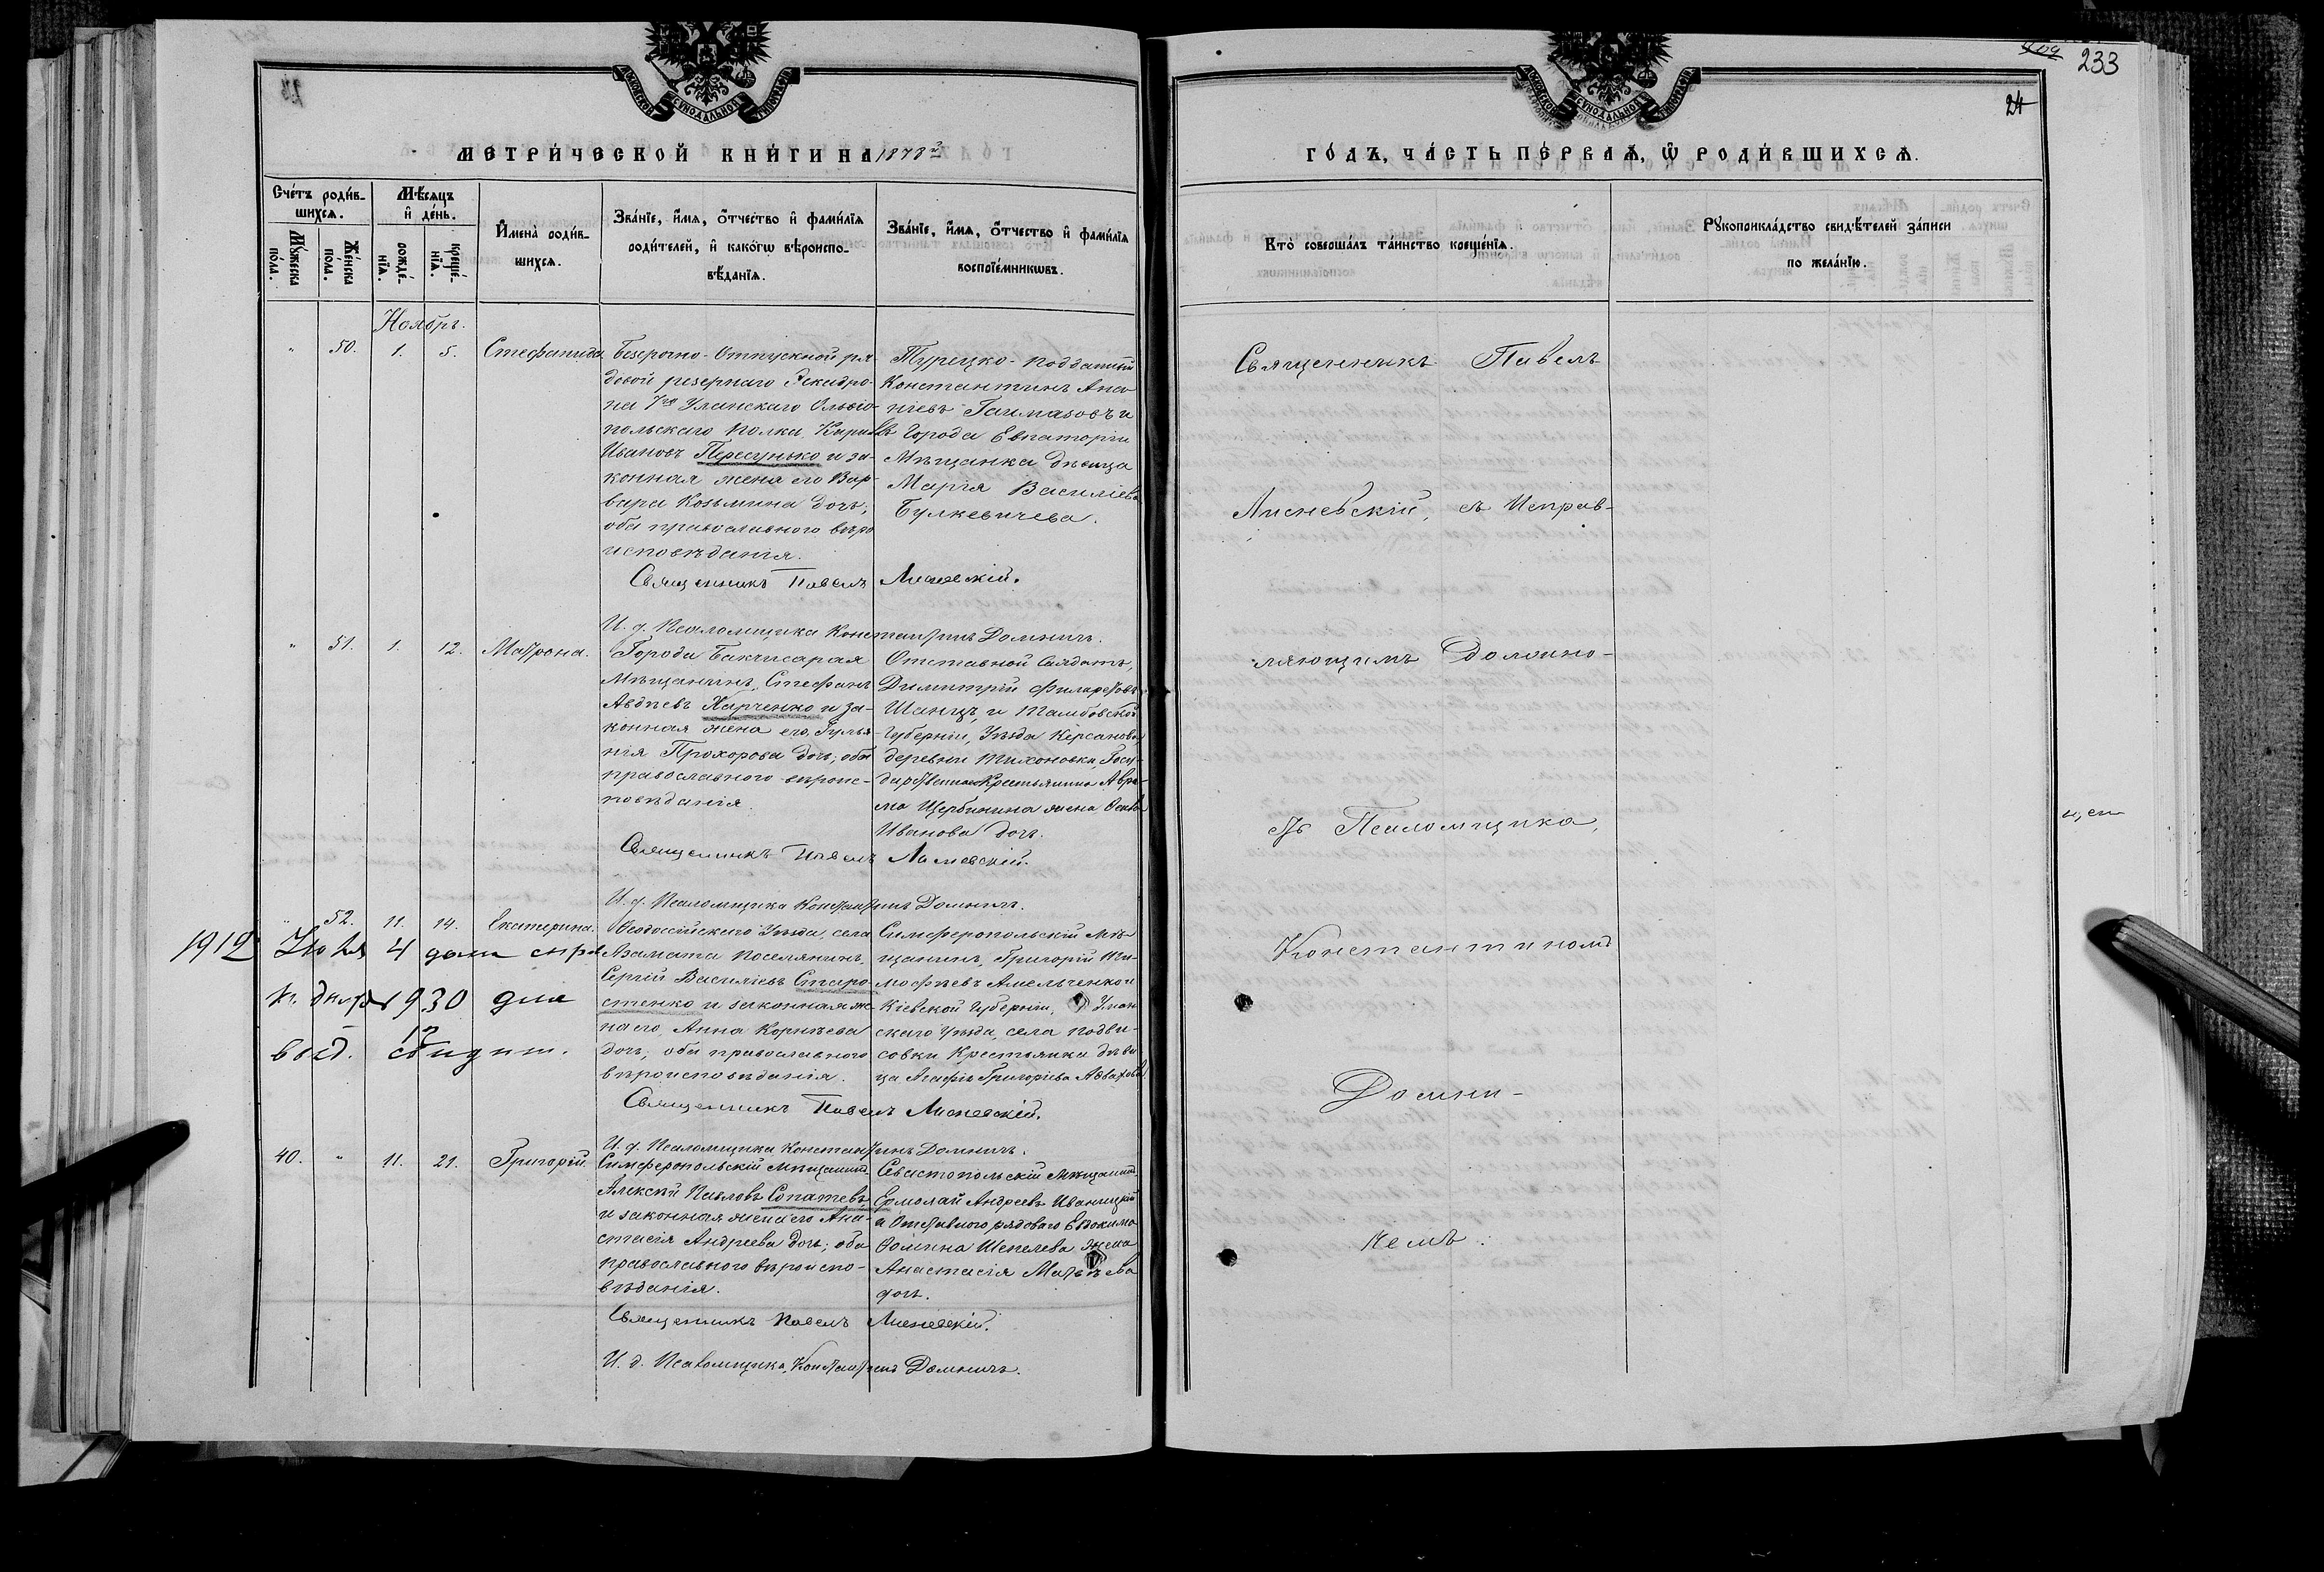 233
24
МОСКОВСКОЙ СѴНОДАЛЬНОЙ ТИПОГРАФІИ
МЕТРИ́ЧЕСКОЙ КНИ́ГИ НА 1878й
Сче́тъ роди́в-
шихся.
Мѣ́сяцъ
и҆ де́нь.
Мꙋ́жеска
по́ла.
Же́нска
по́ла.
рожде́-
нїѧ.
креще́-
нїѧ.
И҆мена̀ роди́в-
шихся.
Зва́нїе, и҆́мѧ, ѻ҆́тчество и҆ фами́лїѧ
роди́телей, и҆ како́гѡ вѣроиспо-
вѣ́данїѧ.
Зва́нїе, и҆́мѧ, ѻ҆́тчество и҆ фами́лїѧ
воспрїе́мникѡвъ.
Ноябрь.
" 50. 1. 5. Стефанида
Безсрочно-Отпускной ря-
довой резервнаго Эскадро-
на 7го Уланскаго Ольвіо-
польскаго полка, Кирилъ
Ивановъ Пересунько и за-
конная жена его Вар-
вара Козьмина дочь;
оба православнаго вѣро
исповѣданія.
Турецко-подданный
Константинъ
и
Города Евпаторіи
Мѣщанка дѣвица
Марія Василіева
Булкевичева.
Священникъ Павелъ Лисневскій.
И. д. Псаломщика Константинъ Домничъ.
" 51. 1. 12. Матрона.
Города Бахчисарая
Мѣщанинъ, Стефанъ
Авдѣевъ Харченко и за-
конная жена его, Гулья-
нія Прохорова дочь; оба
православнаго вѣроис-
повѣданія.
Отставной Солдатъ,
Димитрій Филаретовъ
Шанцъ, и Тамбовской
Губерніи, Уѣзда Кирсанова,
деревни Тихоновки, Госу-
дарственнаго Крестьянина Авра-
ма Щербинина жена
Иванова дочь.
Священникъ Павелъ Лисневскій.
И. д. Псаломщика Константинъ Домничъ.
" 52. 11. 14. Екатерина.
Ѳеодосійскаго Уѣзда, села
Азамата поселянинъ,
Сергій Василіевъ Старо-
стенко и законная же-
на его, Анна Корнѣева
дочь, оба православнаго
вѣроисповѣданія.
Симферопольскій Мѣ-
щанинъ, Григорій Ти-
мофѣевъ Амельченко и
Кіевской Губерніи, Уман
скаго Уѣзда, села Подви-
совки Крестьянка дѣви
ца Агафія Григоріева
1912 Іюля 4 дана
1930 дня
выд.
Священникъ Павелъ Лисневскій.
И. д. Псаломщика Константинъ Домничъ.
40. " 11. 21. Григорій.
Симферопольскій Мѣщанинъ
Алексѣй Павловъ Сопатевъ,
и законная жена его Ана-
стасія Андреева дочь; оба
православнаго вѣроиспо-
вѣданія.
Севастопольскій Мѣщанинъ
Ермолай Андреевъ Иваницкій
а Отставного рядоваго Евдокима
Ѳомина Шепелева жена
Анастасія Матвѣева
дочь.
Священникъ Павелъ Лисневскій.
И. д. Псаломщика, Константинъ Домничъ.
МОСКОВСКОЙ СѴНОДАЛЬНОЙ ТИПОГРАФІИ
ГО́ДЪ, ЧА́СТЬ ПЕ́РВАѦ, Ѡ҆ РОДИ́ВШИХСѦ.
Кто̀ соверша́лъ та́инство креще́нїѧ.
Рꙋкоприкла́дство свидѣ́телей за́писи
по жела́нїю.
Священникъ Павелъ
Лисневскій, съ Исправ-
ляющимъ Должно-
сть Псаломщика,
Константиномъ
Домни-
чемъ.